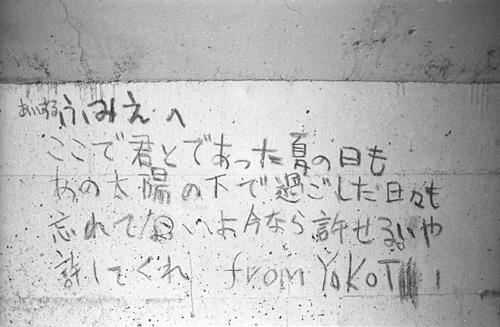 あいするふみえへ
ここで君とであった夏の日も
あの太陽の下で過ごした日々も
忘れてないよ今なら許せるいや
許してくれ from YOKOT